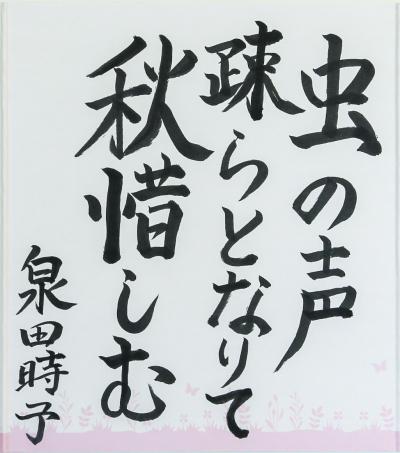 虫の声
疎らとなりて
秋惜しむ
泉田時子